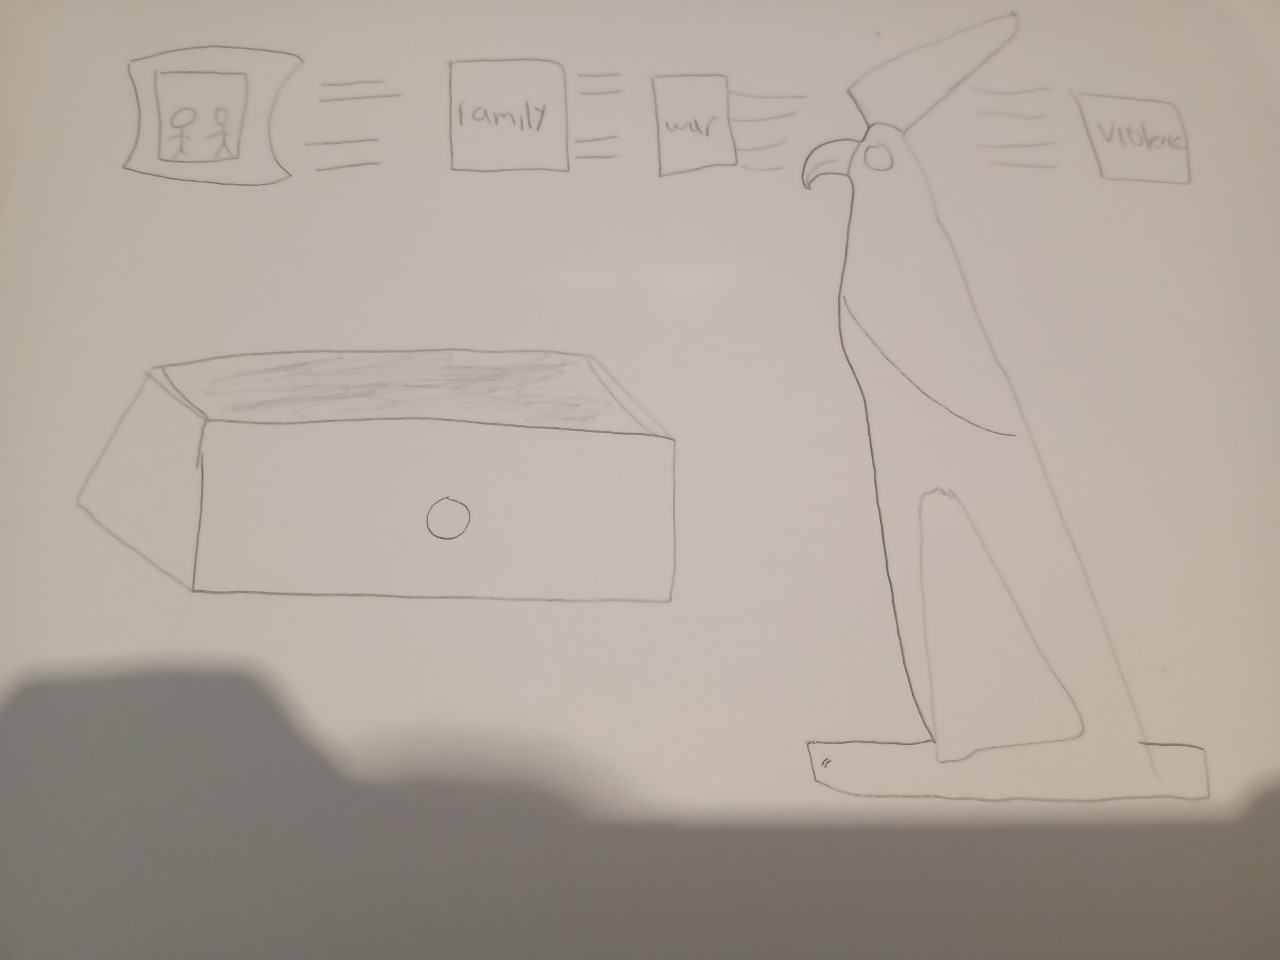 family
war
violence